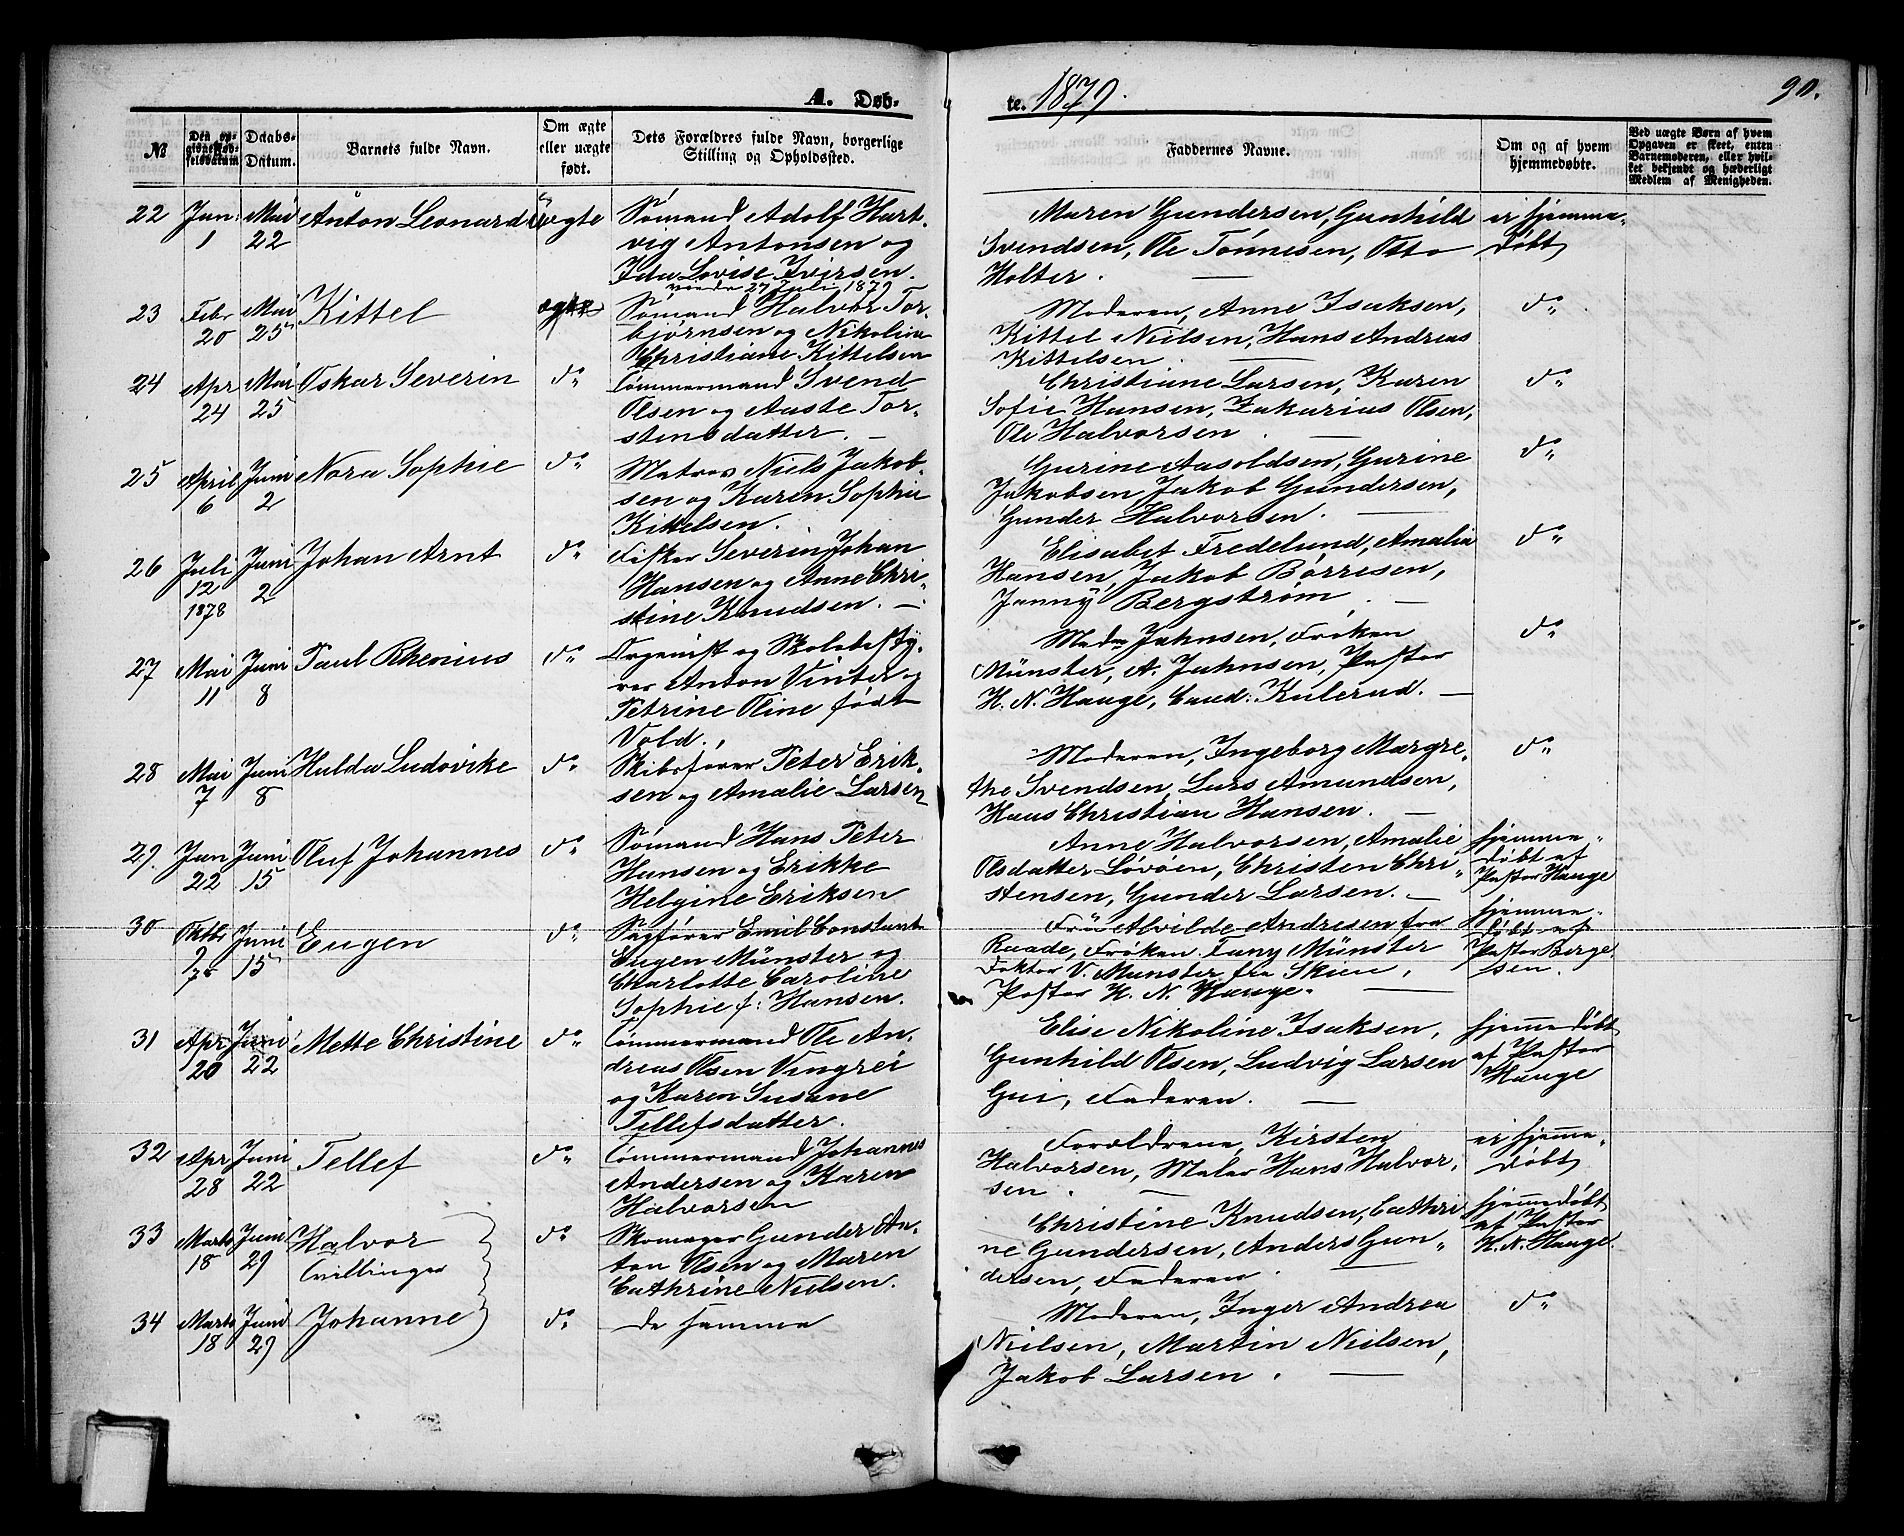 A. Døb-
te. 1879.
90.
№
Den op-
givne Fød-
selsdatum
Daabs-
Datum.
Barnets fulde Navn.
Om ægte
eller uægte
født.
Dets Forældres fulde Navn, borgerlige
Stilling og Opholdssted.
Faddernes Navne.
Om og af hvem
hjemmedøbte.
Ved uægte Børn af hvem
Opgaven er skeet, enten
Barnemoderen, eller hvil-
ket bekjendt og hæderligt
Medlem af Menigheden.
22 Jan: 1 Mai 22 Anton Leonard ægte
Sømand Adolf Hart-
vig Antonsen og
Ida Lovise Iversen.
Maren Gundersen, Gunhild
Svendsen, Ole Tønnesen, Otto
Holter.
er hjemme-
døbt
23 Febr 20 Mai 25 Kittel ægte
27 Juli 1879
Sømand Halvor Tor-
bjørnsen og Nikolina
Christiane Kittelsen
Moderen, Anne Isaksen,
Kittel Nielsen, Hans Andreas
Kittelsen.
do
24 Apr 24 Mai 25 Oskar Severin do
Tømmermand Svend
Olsen og Aaste Tor-
stensdatter.
Christiane Larsen, Karen
Sofie Hansen, Zakarias Olsen,
Ole Halvorsen.
do
25 April 6 Juni 2 Nora Sophie do
Matros Niels Jakob-
sen og Karen Sophie
Kittelsen.
Gurine Aasoldsen, Gurine
Jakobsen, Jakob Gundersen,
Gunder Halvorsen.
do
26 Juli 12 1878 Juni 2 Johan Arnt do
Fisker Severin Johan
Hansen og Anne Chri-
stine Knudsen.
Elisabet Fredelund, Amalia
Hansen, Jakob Børresen,
Janny Bergstrøm.
do
27 Mai 11 Juni 8 Paul Rhenius do
Organist og Skolebesty-
rer Anton Vinter og
Petrine Oline født
Vold.
Mad. Jahnsen, Frøken
Münster, A. Jahnsen, Pastor
H. N. Hauge, Cand: Kulerud.
do
28 Mai 7 Juni 8 Hulda Ludovike do
Skibsfører Peter Erik-
sen og Amalie Larsen
Moderen, Ingeborg Margre-
the Svendsen, Lars Amundsen,
Hans Christian Hansen.
do
29. Jan 22 Juni 15 Oluf Johannes do
Sømand Hans Peter
Hansen og Erikke
Helgine Eriksen
Anne Halvorsen, Amalie
Olsdatter Løvøen, Christen Chri-
stensen, Gunder Larsen.
hjemme-
døbt af
Pastor Hauge
30 Oktbr 9/78 Juni 15 Eugen do
Sagfører Emil Constant
Eugen Münster og
Charlotte Caroline
Sophie f: Hansen.
Frü Alvilde Andresen fra
Raade, Frøken Fany Münster
Doktor V. Munster fra Skien,
Pastor H. N. Hauge.
hjemme-
døbt af
Pastor Berge-
sen.
31 Apr 20 Juni 22 Mette Christine do
Tømmermand Ole An-
dreas Olsen Vingrei
og Karen Susane
Tellefsdatter.
Elise Nikoline Isaksen,
Gunhild Olsen, Ludvig Larsen
Gui, Faderen.
hjemedøbt
af Pastor
Hauge
32 Apr 28 Juni 22 Tellef do
Tømmermand Johannes
Andersen og Karen
Halvorsen
Forældrene, Kirsten
Halvorsen, Maler Hans Halvor-
sen.
er hjeme-
døbt
33 Marts 18 Juni 29 Halvor
Tvillinger do
Skomager Gunder An-
ton Olsen og Maren
Cathrine Nielsen.
Christine Knudsen, Cathri
ne Gundersen, Anders Gun-
dersen, Faderen.
hjemedøbt
af Pastor
H. N. Hauge.
34 Marts 18 Juni 29 Johanne do
de samme
Moderen, Inger Andrea
Nielsen, Martin Nielsen,
Jakob Larsen.
do